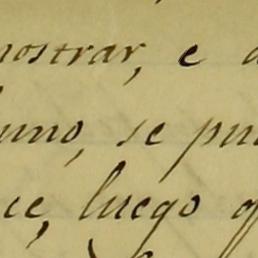 mostrar, e
uno, se pu
ce, luego q